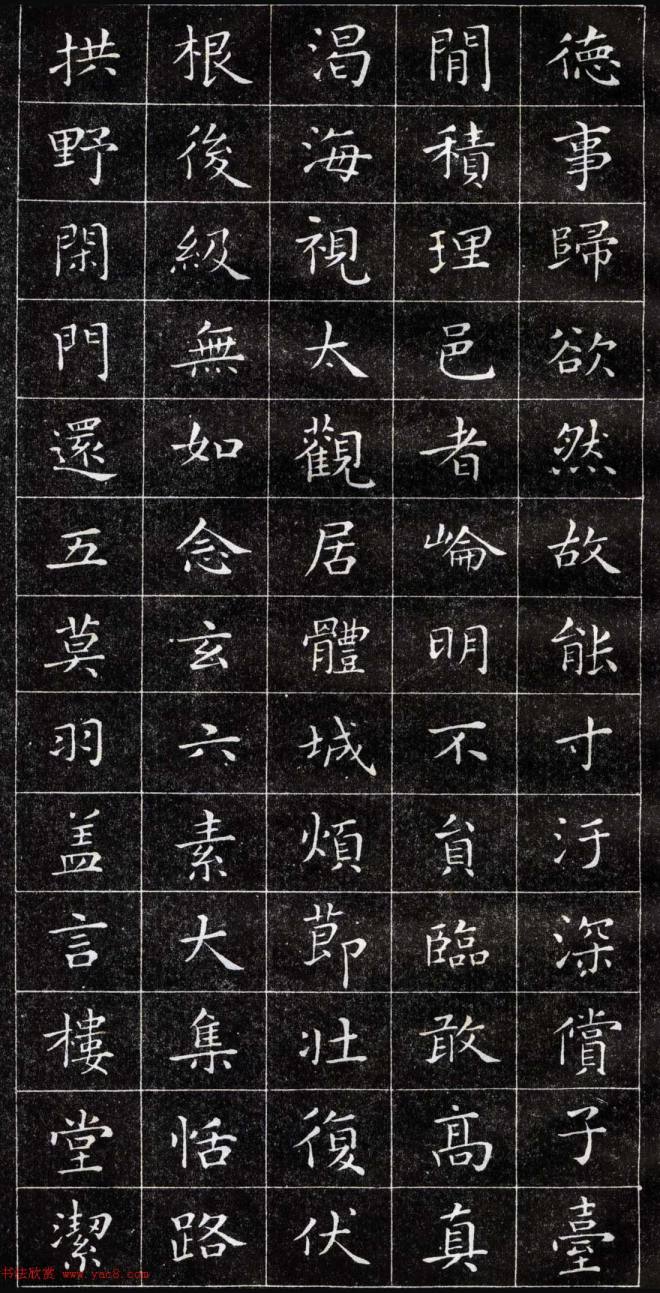 德事歸欲然故能寸汙深償子臺
閒積理邑者崘明不貟臨敢髙真
海視太觀居體城煩莭壯復伏
根後級無如念玄六素大集恬路
拱野閑門還五莫羽盖言樓堂潔
书法欣赏 www.yac8.com